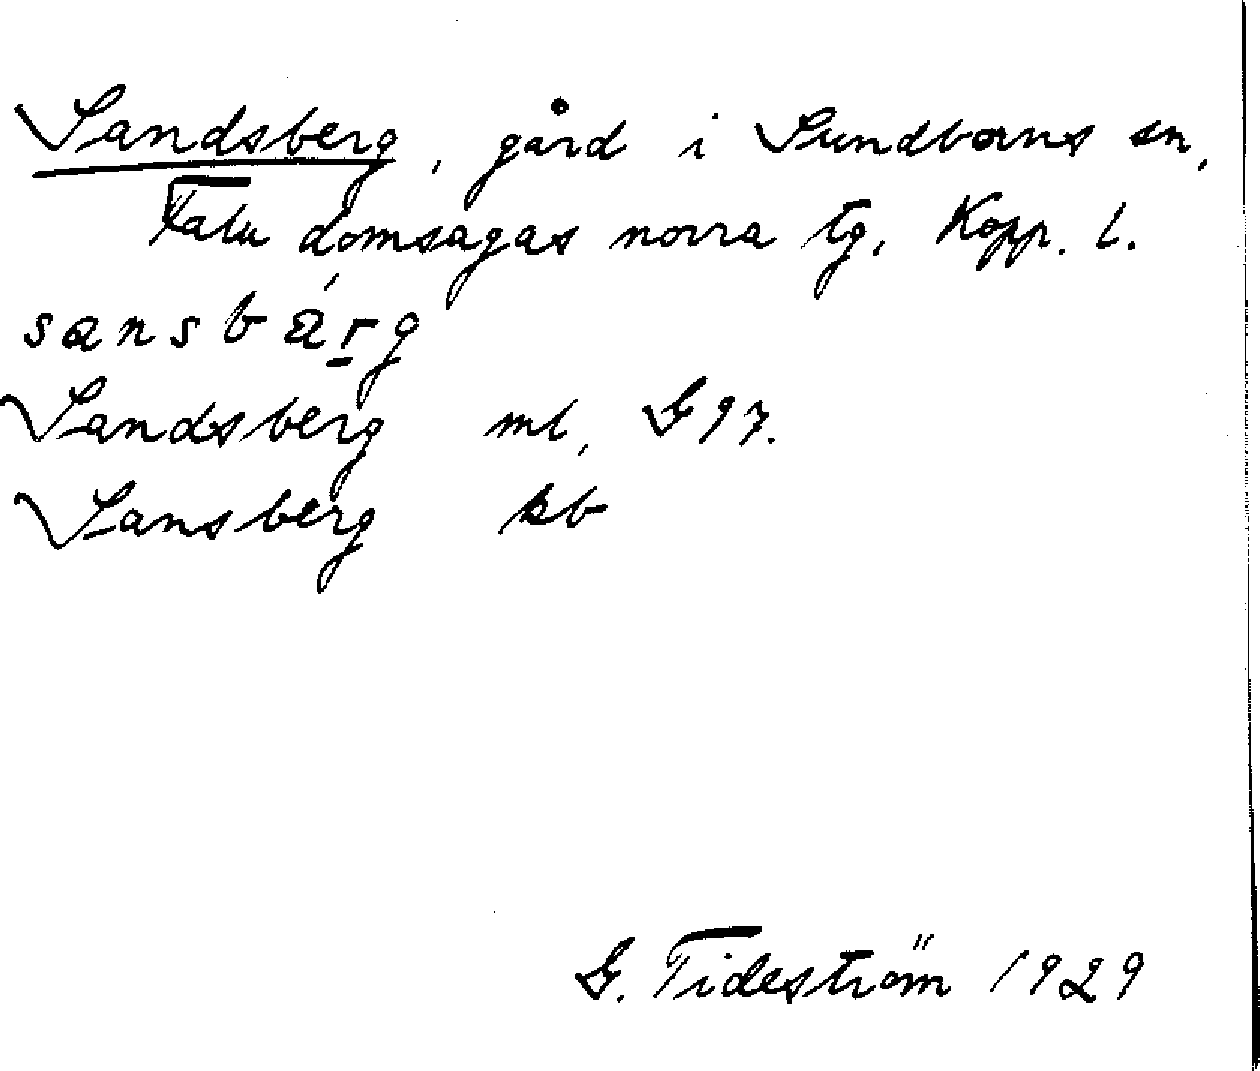 Sandsberg, gård i Sundborns sn,
Falu domsagas norra tg, Kopp. l.
sansbärg
Sandsberg ml, G 97.
Sansberg kb
G. Tideström 1929